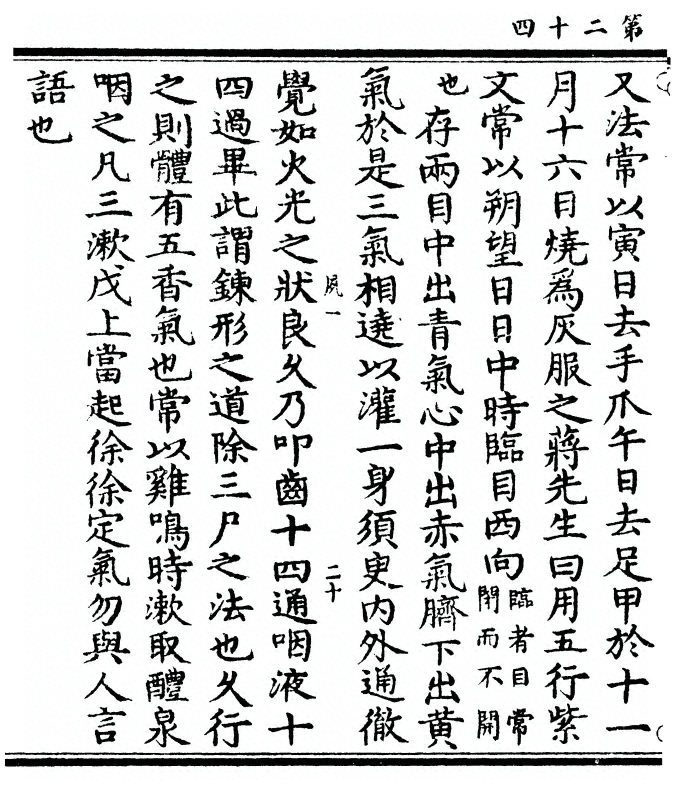 第二十四
又法常以寅日去手爪午日去足甲於十一
月十六日燒爲灰服之蔣先生曰用五行紫
文常以朔望日日中時臨目西向臨者目常閉而不開
也存兩目中出青氣心中出赤氣臍下出黄
氣於是三氣相遶以灌一身須臾内外通徹
夙一 二十
覺如火光之狀良久乃叩齒十四通咽液十
四過畢此謂鍊形之道除三尸之法也久行
之則體有五香氣也常以雞鳴時漱取醴泉
咽之凡三漱戊上當起徐徐定氣勿與人言
語也